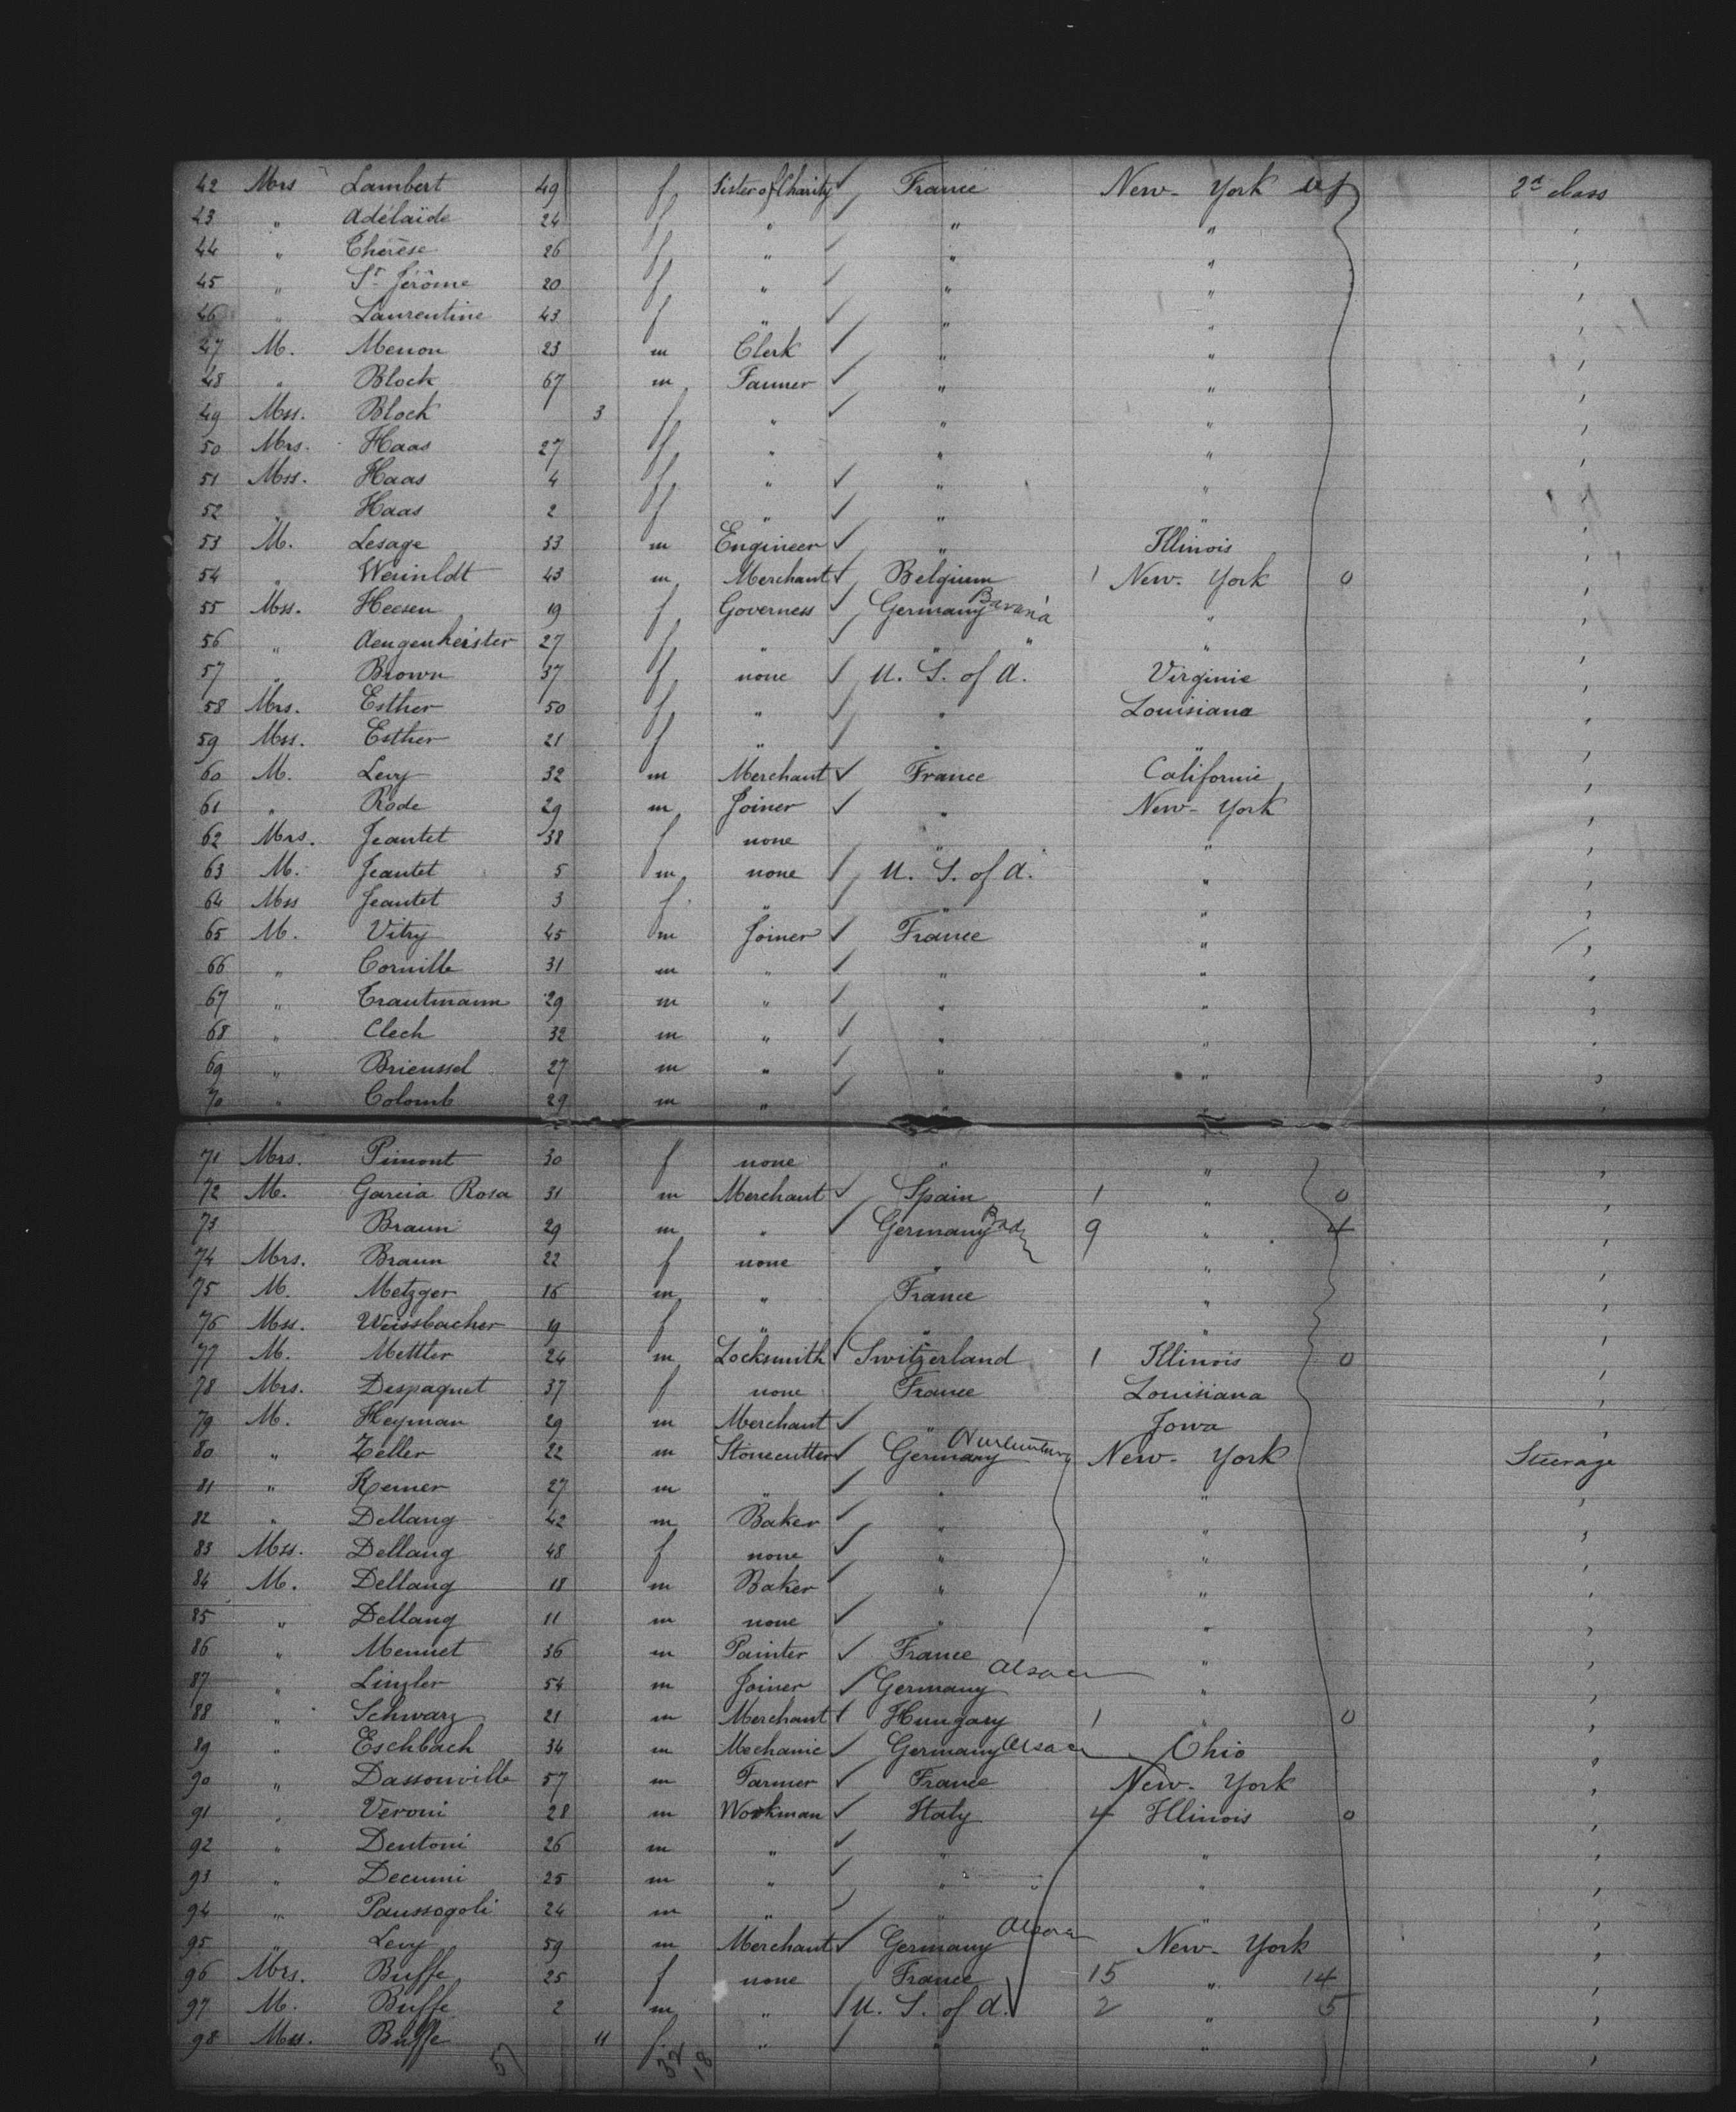 42 Mrs Lambert 49 f Sister of Charity ✓ France New-York 2d class
43 " Adélaïde 24 f " ✓ " " '
44 " Thérèse 26 f " ✓ " " '
45 " St Jérôme 20 f " ✓ " " '
46 " Laurentine 43 f " ✓ " " '
47 M. Menon 23 m Clerk ✓ " " '
48 " Block 67 m Farmer ✓ " " '
49 Mss. Block 3 f " ✓ " " '
50 Mrs. Haas 27 f " " " '
51 Mss. Haas 4 f " ✓ " " '
52 " Haas 2 f " ✓ " " '
53 M. Lesage 33 m Engineer ✓ " Illinois '
54 " 43 m Merchant ✓ Belgium 1 New-York 0 '
55 Mss. Heesen 19 f Governess ✓ Germany Bavaria " '
56 " Aengenheister 27 f " ✓ " " " '
57 " Brown 37 f none ✓ U. S. of A. Virginie '
58 Mrs. Esther 50 f " ✓ " Louisiana '
59 Mss. Esther 21 f " ✓ " " '
60 M. Levy 32 m Merchant ✓ France Californie '
61 " Rode 29 m Joiner ✓ " New-York '
62 Mrs. Jeantet 38 f none " " '
63 M. Jeantet 5 m none ✓ U. S. of A. " '
64 Mss Jeantet 3 f " ✓ " " '
65 M. Vitry 45 m Joiner ✓ France " '
66 " Cornille 31 m " ✓ " " '
67 " Trautmann 29 m " ✓ " " '
68 " Clech 32 m " ✓ " " '
69 " Brieussel 27 m " ✓ " " '
70 " Colomb 29 m " ✓ " " '
71 Mrs. Pimont 30 f none " " '
72 M. Garcia Rosa 31 m Merchant ✓ Spain 1 " 0 '
73 Braun 29 m " ✓ Germany Bad 9 " 4 '
74 Mrs. Braun 22 f none " " '
75 M. Metzger 16 m " France " '
76 Mss. Weissbacher 19 f " " " '
77 M. Mettler 24 m Locksmith ✓ Switzerland 1 Illinois 0 '
78 Mrs. Despaquet 37 f none France Louisiana '
79 M. Heyman 29 m Merchant ✓ " Iowa '
80 " Zeller 22 m Stonecutter ✓ Germany New-York Steerage
81 " Kerner 27 m " ✓ " " '
82 " Dellang 42 m Baker ✓ " " '
83 Mss. Dellang 48 f none ✓ " " '
84 M. Dellang 18 m Baker ✓ " " '
85 " Dellang 11 m none ✓ " " '
86 " Mennet 36 m Painter ✓ France " '
87 " Linzler 54 m Joiner ✓ Germany Alsace " '
88 " Schwarz 21 m Merchant ✓ Hungary 1 " 0 '
89 " Eschbach 34 m Mechanic ✓ Germany Alsace Ohio '
90 " Dassonville 57 m Farmer ✓ France New-York '
91 " Veroni 28 m Workman ✓ Italy 4 Illinois 0 '
92 " Dentoni 26 m " ✓ " " '
93 " Decumi 25 m " ✓ " " '
94 " Paussogoli 24 m " ✓ " " '
95 " Levy 59 m Merchant ✓ Germany Alsace New-York '
96 Mrs. Buffe 25 f none France 15 " 14 '
97 M. Buffe 2 m " ✓ U. S. of A. 2 " 5 '
98 Mss. Buffe 11 f " ✓ " " '
57 32 18